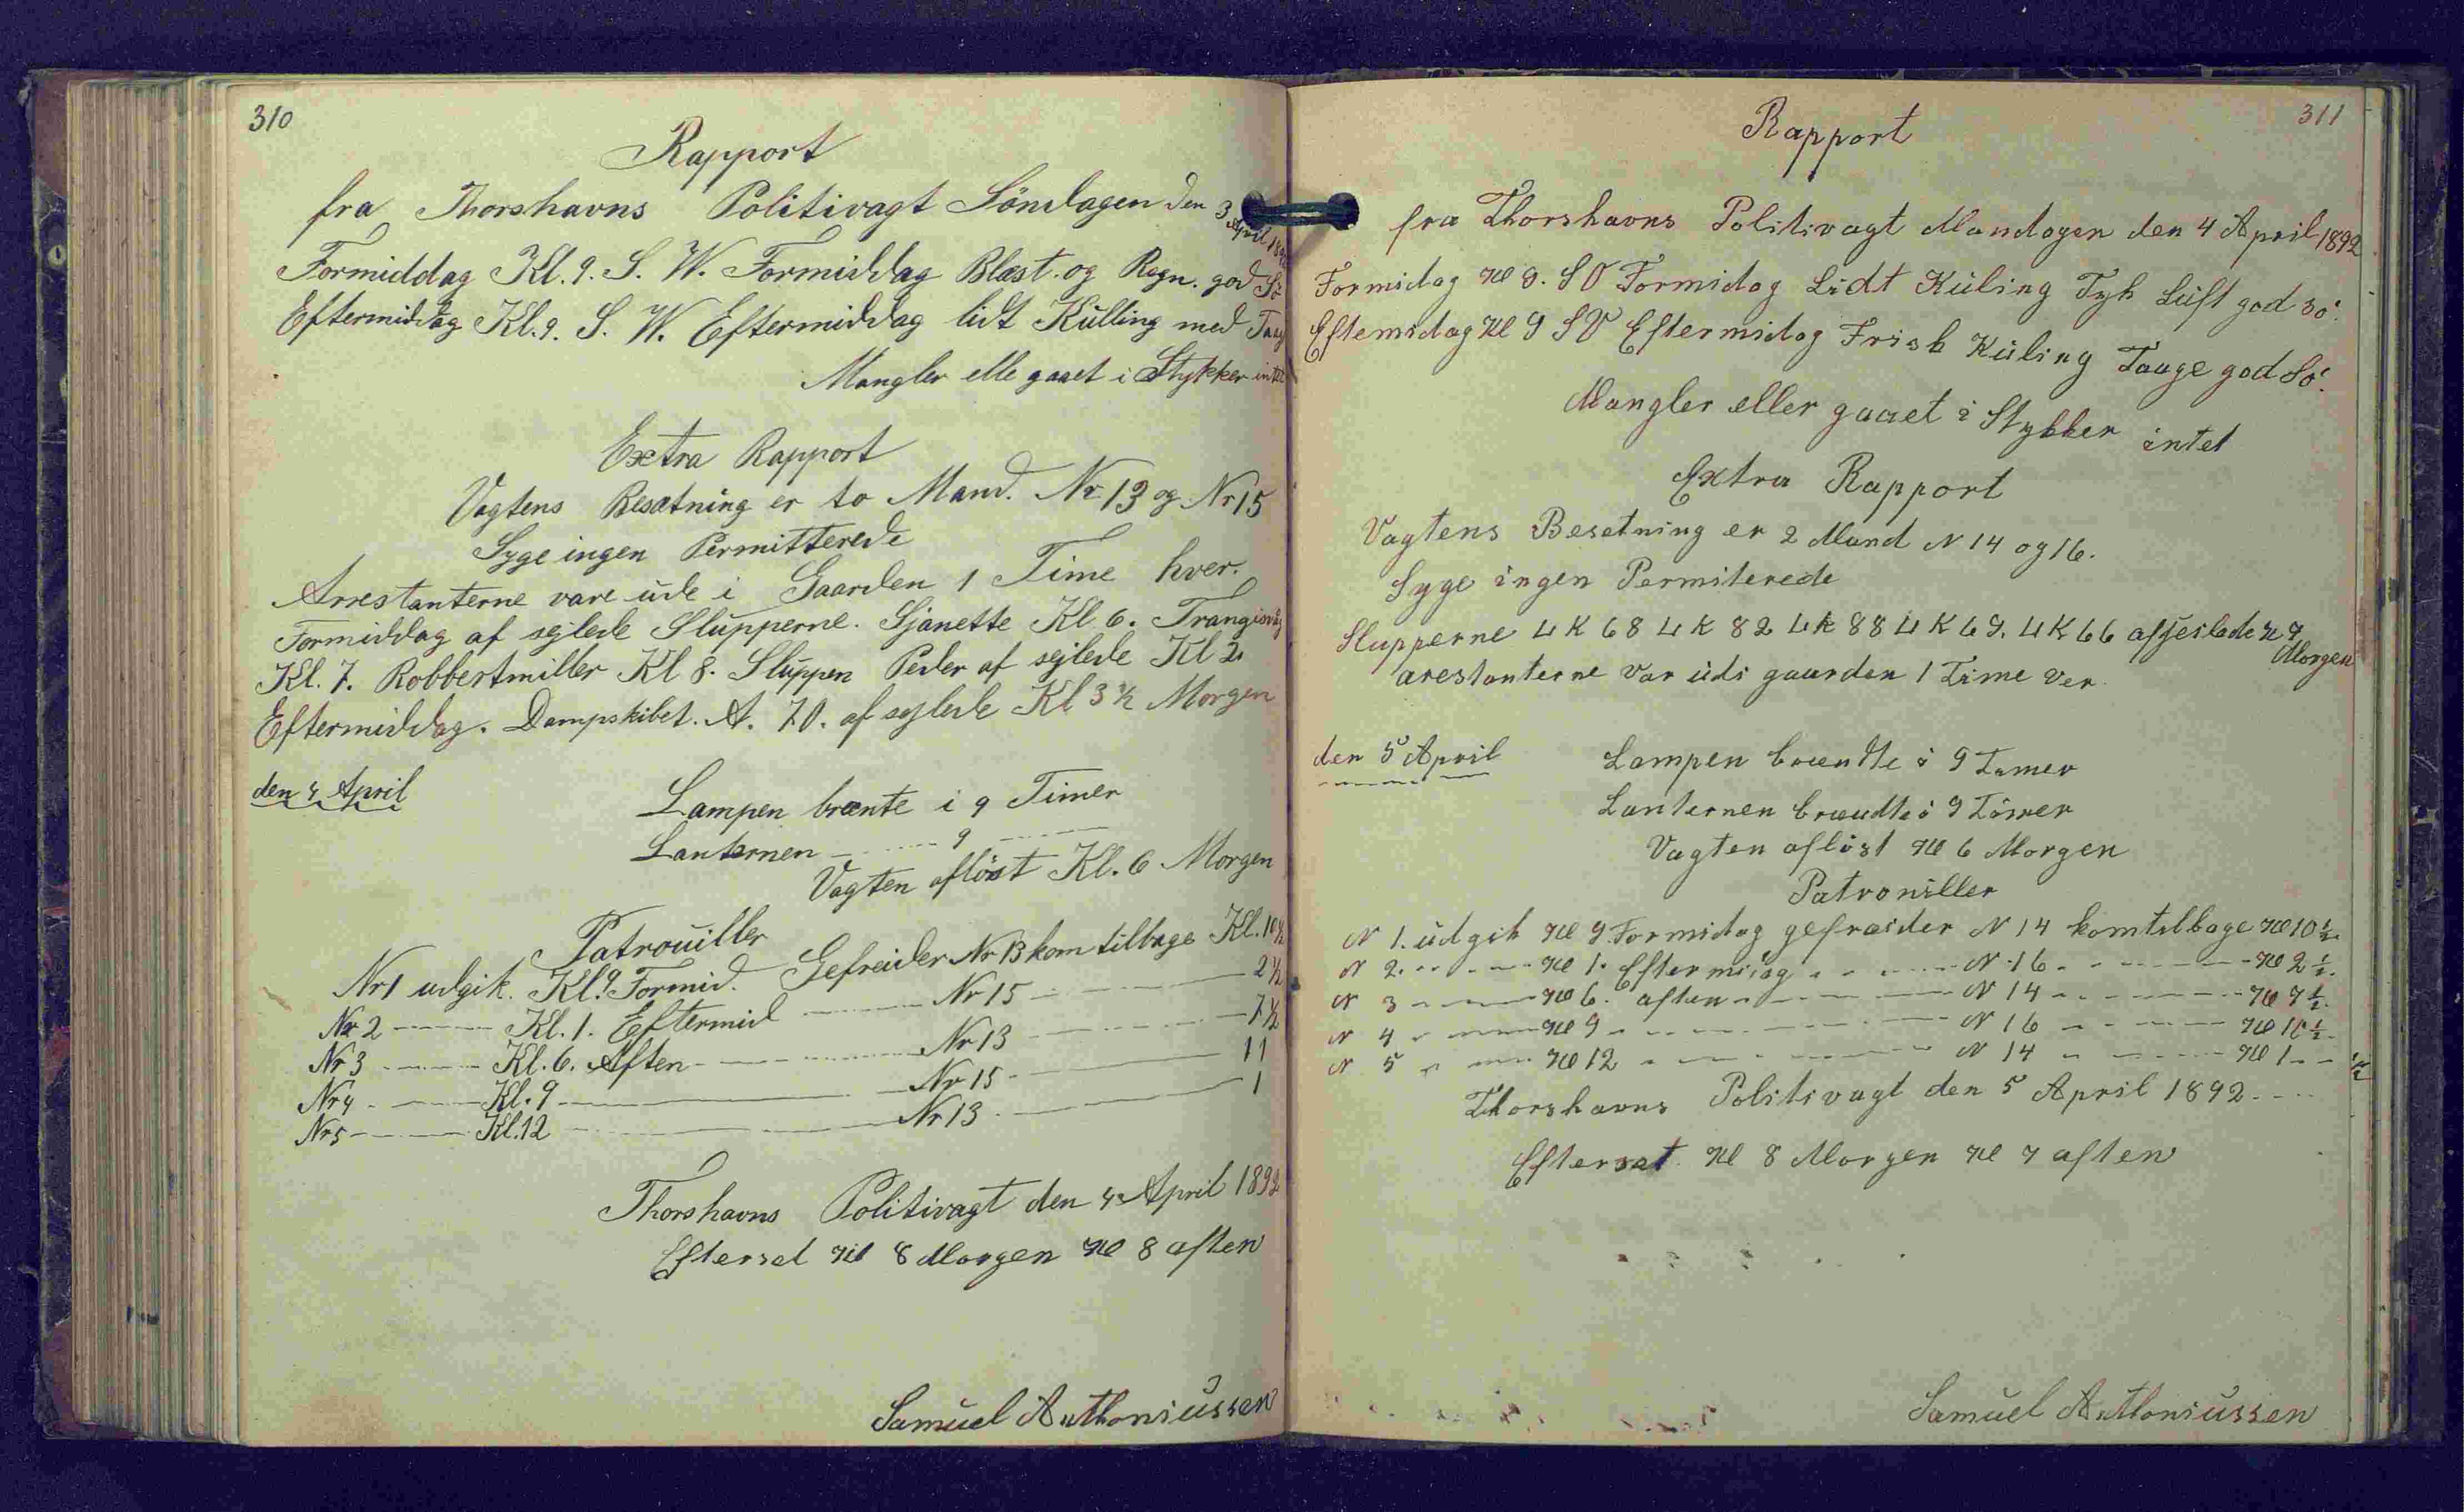 310
Rapport
fra Thorshavns Politivagt Söndagen den 3 April 1892
Formiddag Kl. 9. S. W. Formiddag Blæst. og Regn. god Sö
Eftermiddag Kl. 9. S. W. Eftermiddag lidt Kulling med Taage
Mangler elle gaaet i Stykker intet
Extra Rapport
Vagtens Besætning er to Mand. Nr 13 og Nr 15
Syge ingen Permitterede
Arrestanterne vare ude i Gaarden 1 Time hver.
Formiddag af sejlede Slupperne. Sjanette Kl 6. Trangisvaag
Kl. 7. Robbertmiller Kl 8. Sluppen Peder af sejlede Kl 2.
Eftermiddag. Dampskibet. A. 70. af sejlede Kl 3 ½ Morgen
den 4 April
Lampen brænte i 9 Timer
Lanternen — 9 —
Vagten aflöst Kl. 6 Morgen
Patrouiller
Nr 1 udgik. Kl. 9 Formid. Gefreider Nr 13 kom tilbage Kl. 10 ½
Nr 2 — Kl. 1. Eftermid — Nr 15 — 2 ½
Nr 3 — Kl. 6. Aften — Nr 13 — 7 ½
Nr 4 — Kl. 9 — Nr 15 — 11
Nr 5 — Kl. 12 — Nr 13 — 1
Thorshavns Politivagt den 4 April 1892
Efterset Kl 8 Morgen Kl 8 aften
Samuel Anthoniussen
311
Rapport
fra Thorshavns Politivagt Mandagen den 4 April 1892
Formidag Kl 9. S O Formidag Lidt Küling Tyk Luft god So.
Eftemidag Kl 9 S V Eftermidag Frisk Küling Taage god So.
Mangler eller gaaet i Stykker intet
Extra Rapport
Vagtens Besetning er 2 Mand N 14 og 16.
Syge ingen Permiterede
Slupperne L K 68 L K 82 L K 88 L K 69. L K 66 afseilede Kl 7 Morgen
arestanterne var udi gaarden 1 Time ver
den 5 April
Lampen brændte i 9 Timer
Lanternen brændte i 9 Timer
Vagten aflöst Kl 6 Morgen
Patroniller
N 1. udgik Kl 9 Formidag gefraider N 14 kom tilbage Kl 10 ½
N 2. — Kl 1. Eftermidag — N 16 — Kl 2 ½.
N 3 — Kl 6. aften — N 14 — Kl 7 ½.
N 4 — Kl 9 — N 16 — Kl 10 ½.
N 5 — Kl 12 — N 14 — Kl 1 — ½
Thorshavns Politivagt den 5 April 1892
Efterset Kl 8 Morgen Kl 7 aften
Samuel Anthoniussen